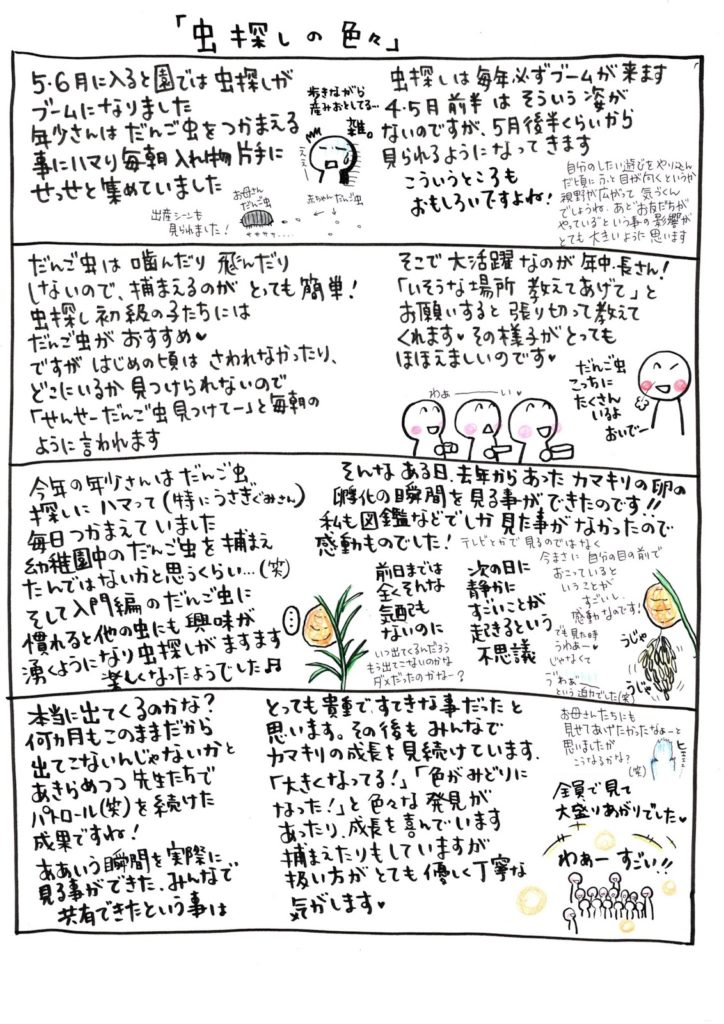 「虫探しの色々」
5・6月に入ると園では虫探しが
ブームになりました
年少さんはだんご虫をつかまえる
事にハマり毎朝入れ物片手に
せっせと集めていました
歩きながら
産みおとしてる…
雑。
えぇ…
お母さん
だんご虫
赤ちゃんだんご虫
出産シーンも
見られました!
ササササ…
虫探しは毎年必ずブームが来ます
4・5月前半はそういう姿が
ないのですが、5月後半くらいから
見られるようになってきます
こういうところも
おもしろいですよね!
自分のしたい遊びをやり込ん
だ頃にふと目が向くというか
視野が広がって気づくん
でしょうね。あとお友だちが
やっているという事の影響が
とても大きいように思います
だんご虫は噛んだり飛んだり
しないので、捕まえるのがとっても簡単!
虫探し初級の子たちには
だんご虫がおすすめ♥
ですがはじめの頃はさわれなかったり、
どこにいるか見つけられないので
「せんせーだんご虫見つけてー」と毎朝の
ように言われます
そこで大活躍なのが年中・長さん!
「いそうな場所教えてあげて」と
お願いすると張り切って教えて
くれます♥その様子がとっても
ほほえましいのです♥
わぁーーい♥
だんご虫
こっちに
たくさん
いるよ
おいでー
今年の年少さんはだんご虫
探しにハマって(特にうさぎぐみさん)
毎日つかまえていました
幼稚園中のだんご虫を捕まえ
たんではないかと思うくらい…(笑)
そして入門編のだんご虫に
慣れると他の虫にも興味が
湧くようになり虫探しがますます
楽しくなったようでした♬
そんなある日、去年からあったカマキリの卵の
孵化の瞬間を見る事ができたのです!!
私も図鑑などでしか見た事がなかったので
感動ものでした!
テレビとかで見るのではなく
今まさに自分の目の前で
おこっていると
いうことが
すごいし、
感動なのです!
でも見た時
うわぁ〜♡
じゃなくて
う゛わぁー
という迫力でした(笑)
前日までは
全くそんな
気配も
ないのに
いつ出てくるんだろう
もう出てこないのかな
ダメだったのかなー?
次の日に
静かに
すごいことが
起きるという
不思議
うじゃ
うじゃ
本当に出てくるのかな?
何ヵ月もこのままだから
出てこないんじゃないかと
あきらめつつ先生たちで
パトロール(笑)を続けた
成果ですね!
ああいう瞬間を実際に
見る事ができた、みんなで
共有できたという事は
とっても貴重で、すてきな事だったと
思います。その後もみんなで
カマキリの成長を見続けています、
「大きくなってる!」「色がみどりに
なった!」と色々な発見が
あったり、成長を喜んでいます
捕まえたりもしていますが
扱い方がとても優しく丁寧な
気がします♥
お母さんたちにも
見せてあげたかったなぁーと
思いましたが
こうなるかな?
(笑)
全員で見て
大盛りあがりでした♥
わぁー すごい!!